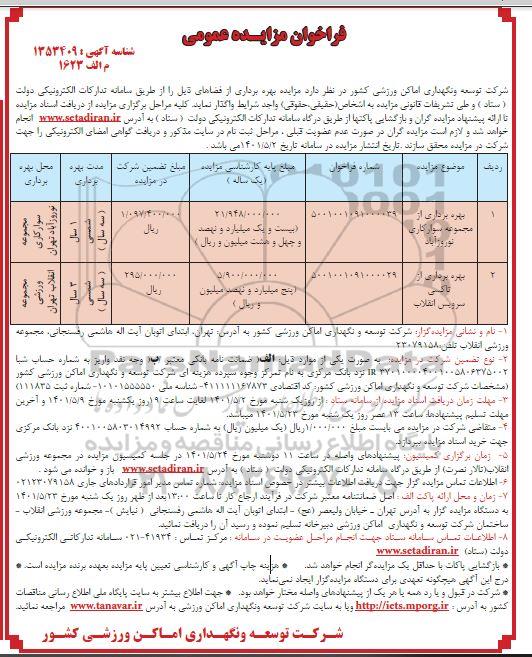 فراخوان مزایده عمومی
شناسه آگهی : ۱۳۵۳۴۰۹
م الف ۱۶۲۳
شرکت توسعه ونگهداری اماکن ورزشی کشور در نظر دارد مزایده بهره برداری از فضاهای ذیل را از طریق سامانه تدارکات الکترونیکی دولت
( ستاد ) و طی تشریفات قانونی مزایده به اشخاص(حقیقی،حقوقی) واجد شرایط واگذار نماید. کلیه مراحل برگزاری مزایده از دریافت اسناد مزایده
تا ارائه پیشنهاد مزایده گران و بازگشایی پاکتها از طریق درگاه سامانه تدارکات الکترونیکی دولت ( ستاد ) به آدرس www.setadiran.ir انجام
خواهد شد و لازم است مزایده گران در صورت عدم عضویت قبلی ، مراحل ثبت نام در سایت مذکور و دریافت گواهی امضای الکترونیکی را جهت
شرکت در مزایده محقق سازند .تاریخ انتشار مزایده در سامانه تاریخ ۱۴۰۱/۵/۲می باشد .
ردیف موضوع مزایده شماره فراخوان مبلغ پایه کارشناسی مزایده (یک ساله ) مبلغ تضمین شرکت در مزایده مدت بهره برداری محل بهره برداری
۱ بهره برداری از مجموعه سوارکاری نوروزآباد ۵۰۰۱۰۰۱۰۹۱۰۰۰۰۳۹ ۲۱/۹۴۸/۰۰۰/۰۰۰ (بیست و یک میلیارد و نهصد و چهل و هشت میلیون و ریال ) ۱/۰۹۷/۴۰۰/۰۰۰ ریال ۱ سال شمسی ( سه سال ) مجموعه سوارکاری نوروزآباد تهران
۲ بهره برداری از تاکسی سرویس انقلاب ۵۰۰۱۰۰۱۰۹۱۰۰۰۰۲۹ ۵/۹۰۰/۰۰۰/۰۰۰ (پنج میلیارد و نهصد میلیون و ریال ) ۲۹۵/۰۰۰/۰۰۰ ریال ۳ سال شمسی ( سه سال ) مجموعه ورزشی انقلاب تهران
۱- نام و نشانی مزایده‌گزار: شرکت توسعه و نگهداری اماکن ورزشی کشور به آدرس: تهران، ابتدای اتوبان آیت اله هاشمی رفسنجانی، مجموعه
ورزشی انقلاب تلفن:۲۳۰۷۹۱۵۸
۲- نوع تضمین شرکت در مزایده: به صورت یکی از موارد ذیل: الف( ضمانت نامه بانکی معتبر ب( وجه نقد واریز به شماره حساب شبا
IR ۳۷۰۱۰۰۰۰۴۰۰۱۰۰۵۸۰۶۳۷۵۰۰۲ نزد بانک مرکزی به نام تمرکز وجوه سپرده هزینه ای شرکت توسعه و نگهداری اماکن ورزشی کشور
(مشخصات شرکت توسعه و نگهداری اماکن ورزشی کشور: کد اقتصادی ۴۱۱۱۱۱۱۶۷۸۷۳- شناسه ملی ۱۰۱۰۱۵۵۵۵۵۰- شماره ثبت ۱۱۱۸۳۵)
۳- مهلت زمان دریافت اسناد مزایده از سامانه ستاد : از روزیک شنبه مورخ ۱۴۰۱/۵/۲ لغایت ساعت ۱۹روز یکشنبه مورخ ۱۴۰۱/۵/۹ و آخرین
مهلت تسلیم پیشنهادها: ساعت ۱۳ عصر روز یک شنبه مورخ ۱۴۰۱/۵/۲۳ میباشد.
۴- متقاضی شرکت در مزایده می بایست مبلغ ۱/۰۰۰/۰۰۰ریال (یک میلیون ریال) به شماره حساب ۴۰۰۱۰۰۵۸۰۳۰۱۴۹۹۲ نزد بانک مرکزی
جهت خرید اسناد مزایده بپردازد.
۵- زمان برگزاری کمیسیون: پیشنهادهای واصله در ساعت ۱۱ دوشنبه مورخ ۱۴۰۱/۵/۲۴ در جلسه کمیسیون مزایده در مجموعه ورزشی
انقلاب(تالار نصرت) از طریق درگاه سامانه تدارکات الکترونیکی دولت ( ستاد ) به آدرس www.setadiran.ir باز و خوانده می شود .
۶- اطلاعات تماس مزایده گزار جهت دریافت اطلاعات بیشتر در خصوص اسناد مزایده: شماره تماس مدیر امور قراردادهای جاری ۰۲۱۲۳۰۷۹۱۵۸
۷- زمان و محل ارائه پاکت الف : اصل ضمانتنامه معتبر شرکت در فرآیند ارجاع کار تا ساعت ۱۳:۰۰بعد از ظهر روز یک شنبه مورخ ۱۴۰۱/۵/۲۳
به دستگاه مزایده گزار به آدرس تهران ـ خیابان ولیعصر (عج) – ابتدای اتوبان آیت اله هاشمی رفسنجانی ( نیایش )– مجموعه ورزشی انقلاب –
ساختمان شرکت توسعه و نگهداری اماکن ورزشی دبیرخانه تسلیم نموده و رسید آن را دریافت نمائید.
۸- اطلاعات تماس سامانه ستاد جهت انجام مراحل عضویت در سامانه : مرکز تماس : ۴۱۹۳۴-۰۲۱ سامانه تدارکات الکترونیکی
دولت (ستاد) www.setadiran.ir
* بازگشایی پاکات با حداقل یک مزایده‌گر انجام خواهد شد. * هزینه چاپ آگهی و کارشناسی تعیین پایه مزایده بعهده برنده مزایده است.
درج این آگهی هیچگونه تعهدی برای دستگاه مزایده‌گزار ایجاد نمی‌نماید.
* شرکت در قبول و یا رد همه یا هر یک از پیشنهادهای واصله مختار خواهد بود. * جهت اطلاع بیشتر به سایت پایگاه ملی اطلاع رسانی مناقصات
کشور به آدرس : http://iets.mporg.ir وبا به سایت شرکت توسعه ونگهداری اماکن ورزشی به آدرس www.tanavar.ir مراجعه نمائید.
شرکت توسعه ونگهداری اماکن ورزشی کشور